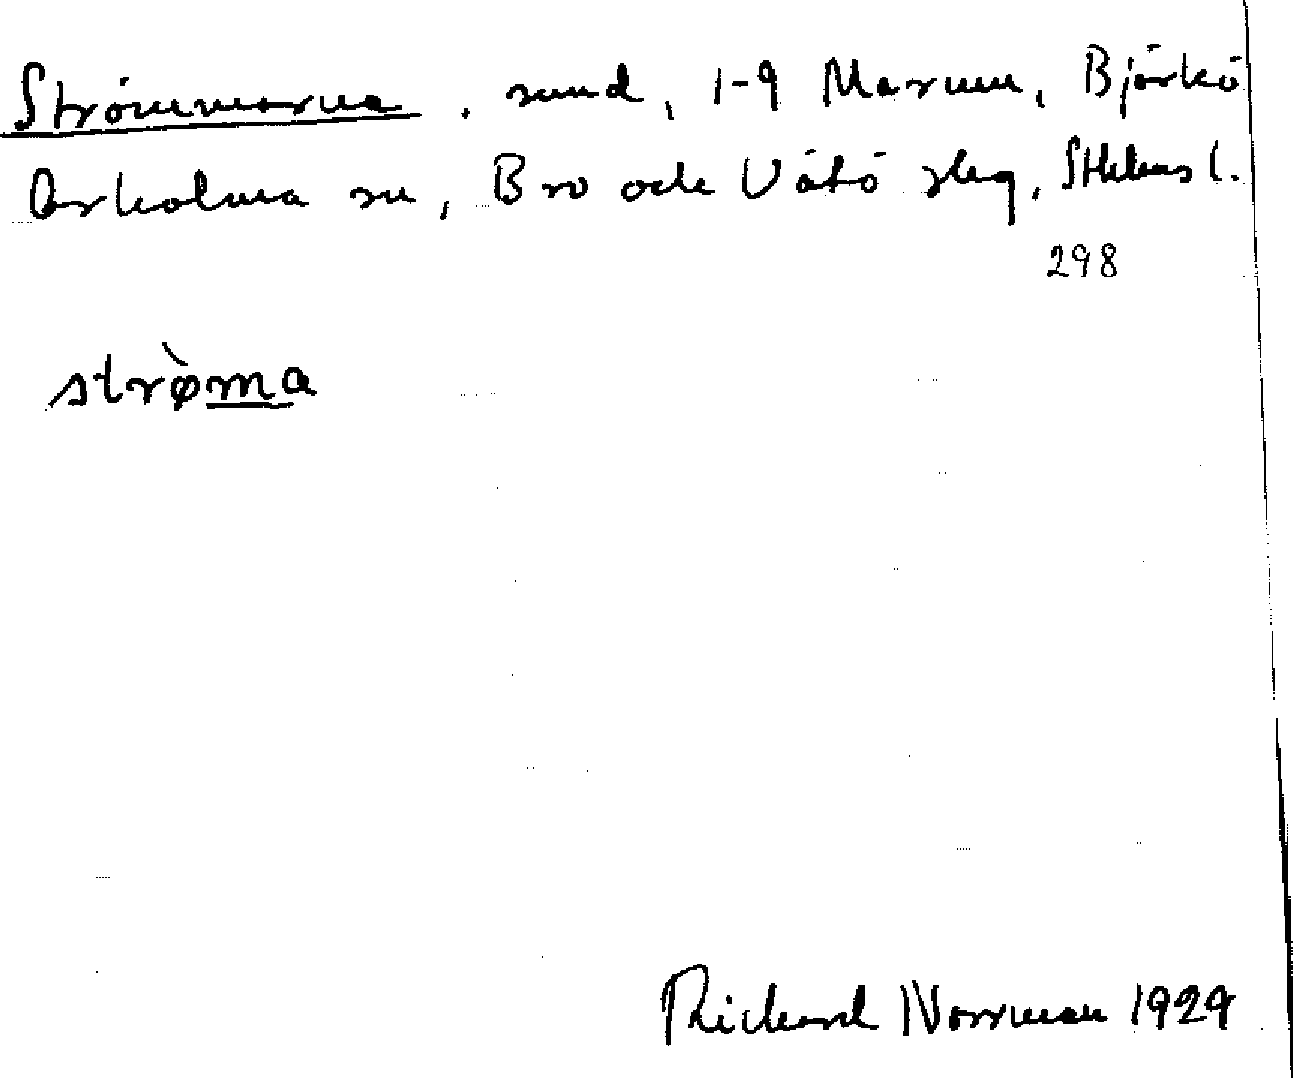 Strömmarna. sund, 1-9 Marum, Björkö
Arholma sn, Bro och Väto skg, Sthlms l.
298
strø̀ma
Richard Norrman 1929